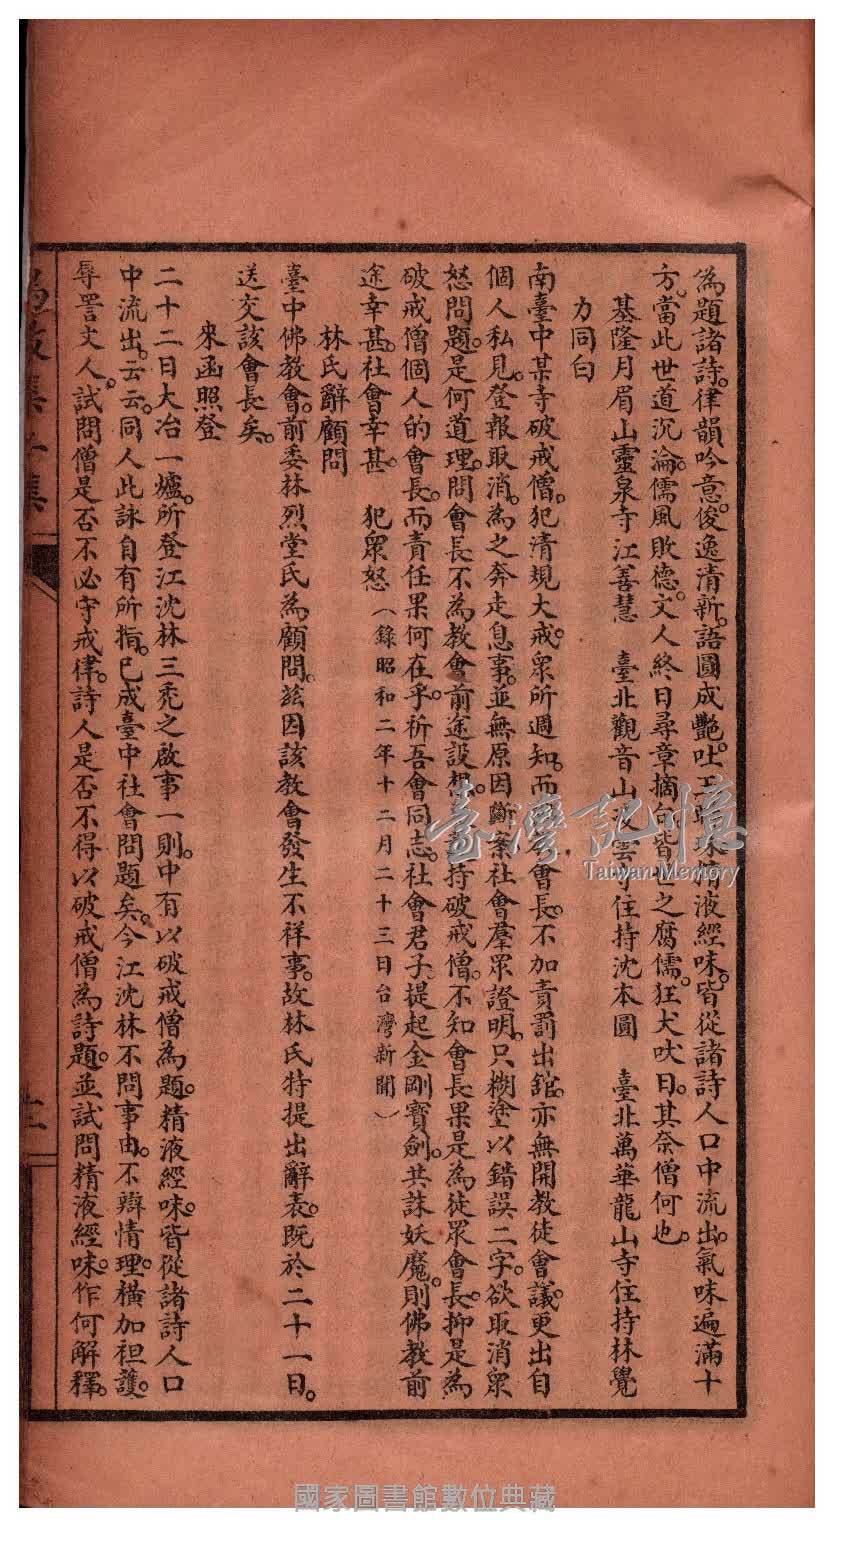 為題諸詩。律韻吟意。俊逸清新。語圓成艷。吐玉珠精液經味。皆從諸詩人口中流出。氣味遍滿十
方。當此世道沉淪。儒風敗德。文人終日尋章摘句皆世之腐儒。狂犬吠日。其奈僧何也。
基隆月眉山靈泉寺江善慧　臺北觀音山凌雲寺住持沈本圓　臺北萬華龍山寺住持林覺
力同白
南臺中某寺破戒僧。犯清規大戒。眾所週知。而會長。不加責罰出舘。亦無開教徒會議。更出自
個人私見。登報取消。為之奔走息事。並無原因斷案社會羣眾證明。只糊塗以錯誤二字。欲取消眾
怒問題。是何道理。問會長不為教會前途設想。持破戒僧。不知會長果是為徒眾會長。抑是為
破戒僧個人的會長。而責任果何在乎。祈吾會同志。社會君子。提起金剛寶劍。共誅妖魔。則佛教前
途幸甚。社會幸甚　犯眾怒（錄昭和二年十二月二十三日台灣新聞）
林氏辭顧問
臺中佛教會。前委林烈堂氏為顧問。茲因該教會發生不祥事。故林氏特提出辭表。既於二十一日。
送交該會長矣。
來函照登
二十二日大冶一爐。所登江沈林三禿之啟事一則。中有以破戒僧為題。精液經味。皆從諸詩人口
中流出。云云。同人此詠自有所指。已成臺中社會問題矣。今江沈林不問事由。不辯情理。橫加袒護。
辱詈文人。試問僧是否不必守戒律。詩人是否不得以破戒僧為詩題。並試問精液經味。作何解釋。
臺灣記憶
Taiwan Memory
國家圖書館數位典藏